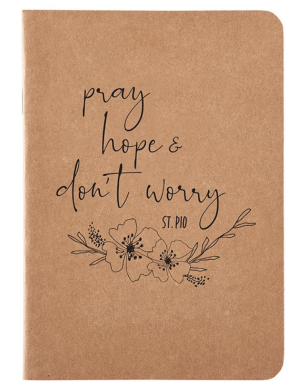 pray
hope &
don't worry
ST. PIO